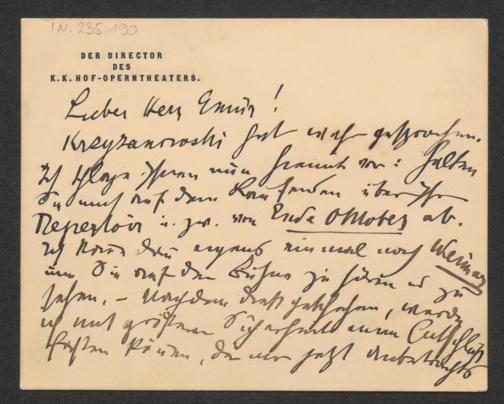 I.N. 235.190
DER DIRECTOR
DES
K. K. HOF-OPERNTHEATERS.
Lieber Herr !
Kreyzanowski hat mich gesprochen.
Ich schlage Ihnen nun hiemit vor: Halten
Sie mich auf dem Laufenden über Ihr
Repertoir u. zw. von Ende Oktober ab.
Ich komme dann eigens einmal nach Weimar
um Sie auf der Bühne zu hören u. zu
sehen. – Nachdem dieß geschehen, werde
ich mit größerer Sicherheit einen Entschluß
fassen können, der mir jetzt